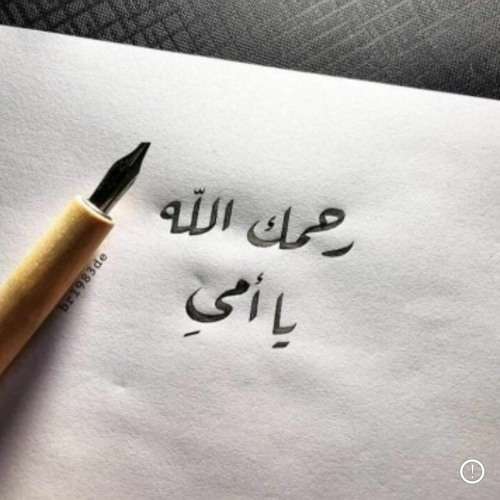 رحمك اللّه
يا أميِ
br1983de